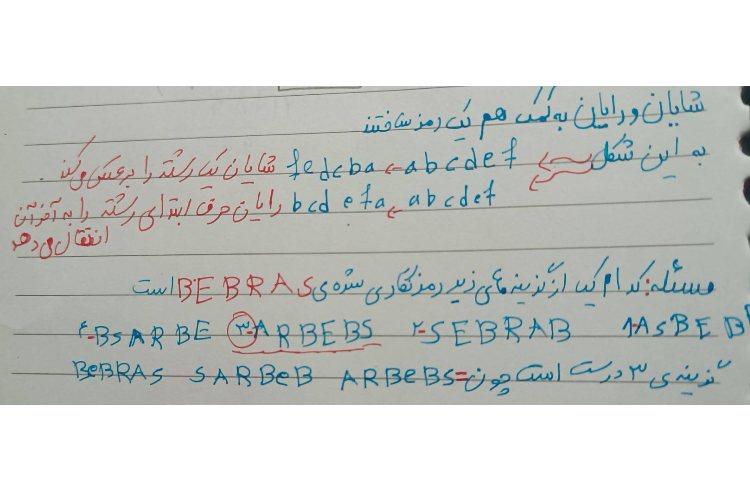 شایان و رایان به کمک هم یک رمز ساختند
به این شکل abcdef ← fedcba شایان یک رشته را برعکس می‌کند.
abcdef ← bcdefa رایان حرف ابتدای رشته را به آخر آن
انتقال می‌دهد
مسئله: کدام یک از گزینه‌های زیر رمزنگاری شده‌ی BEBRAS است
۱-ASBEB ۲-SEBRAB ۳-ARBEBS ۴-BSARBE
گزینه‌ی ۳ درست است چون= BeBRAS SARBeB ARBeBS